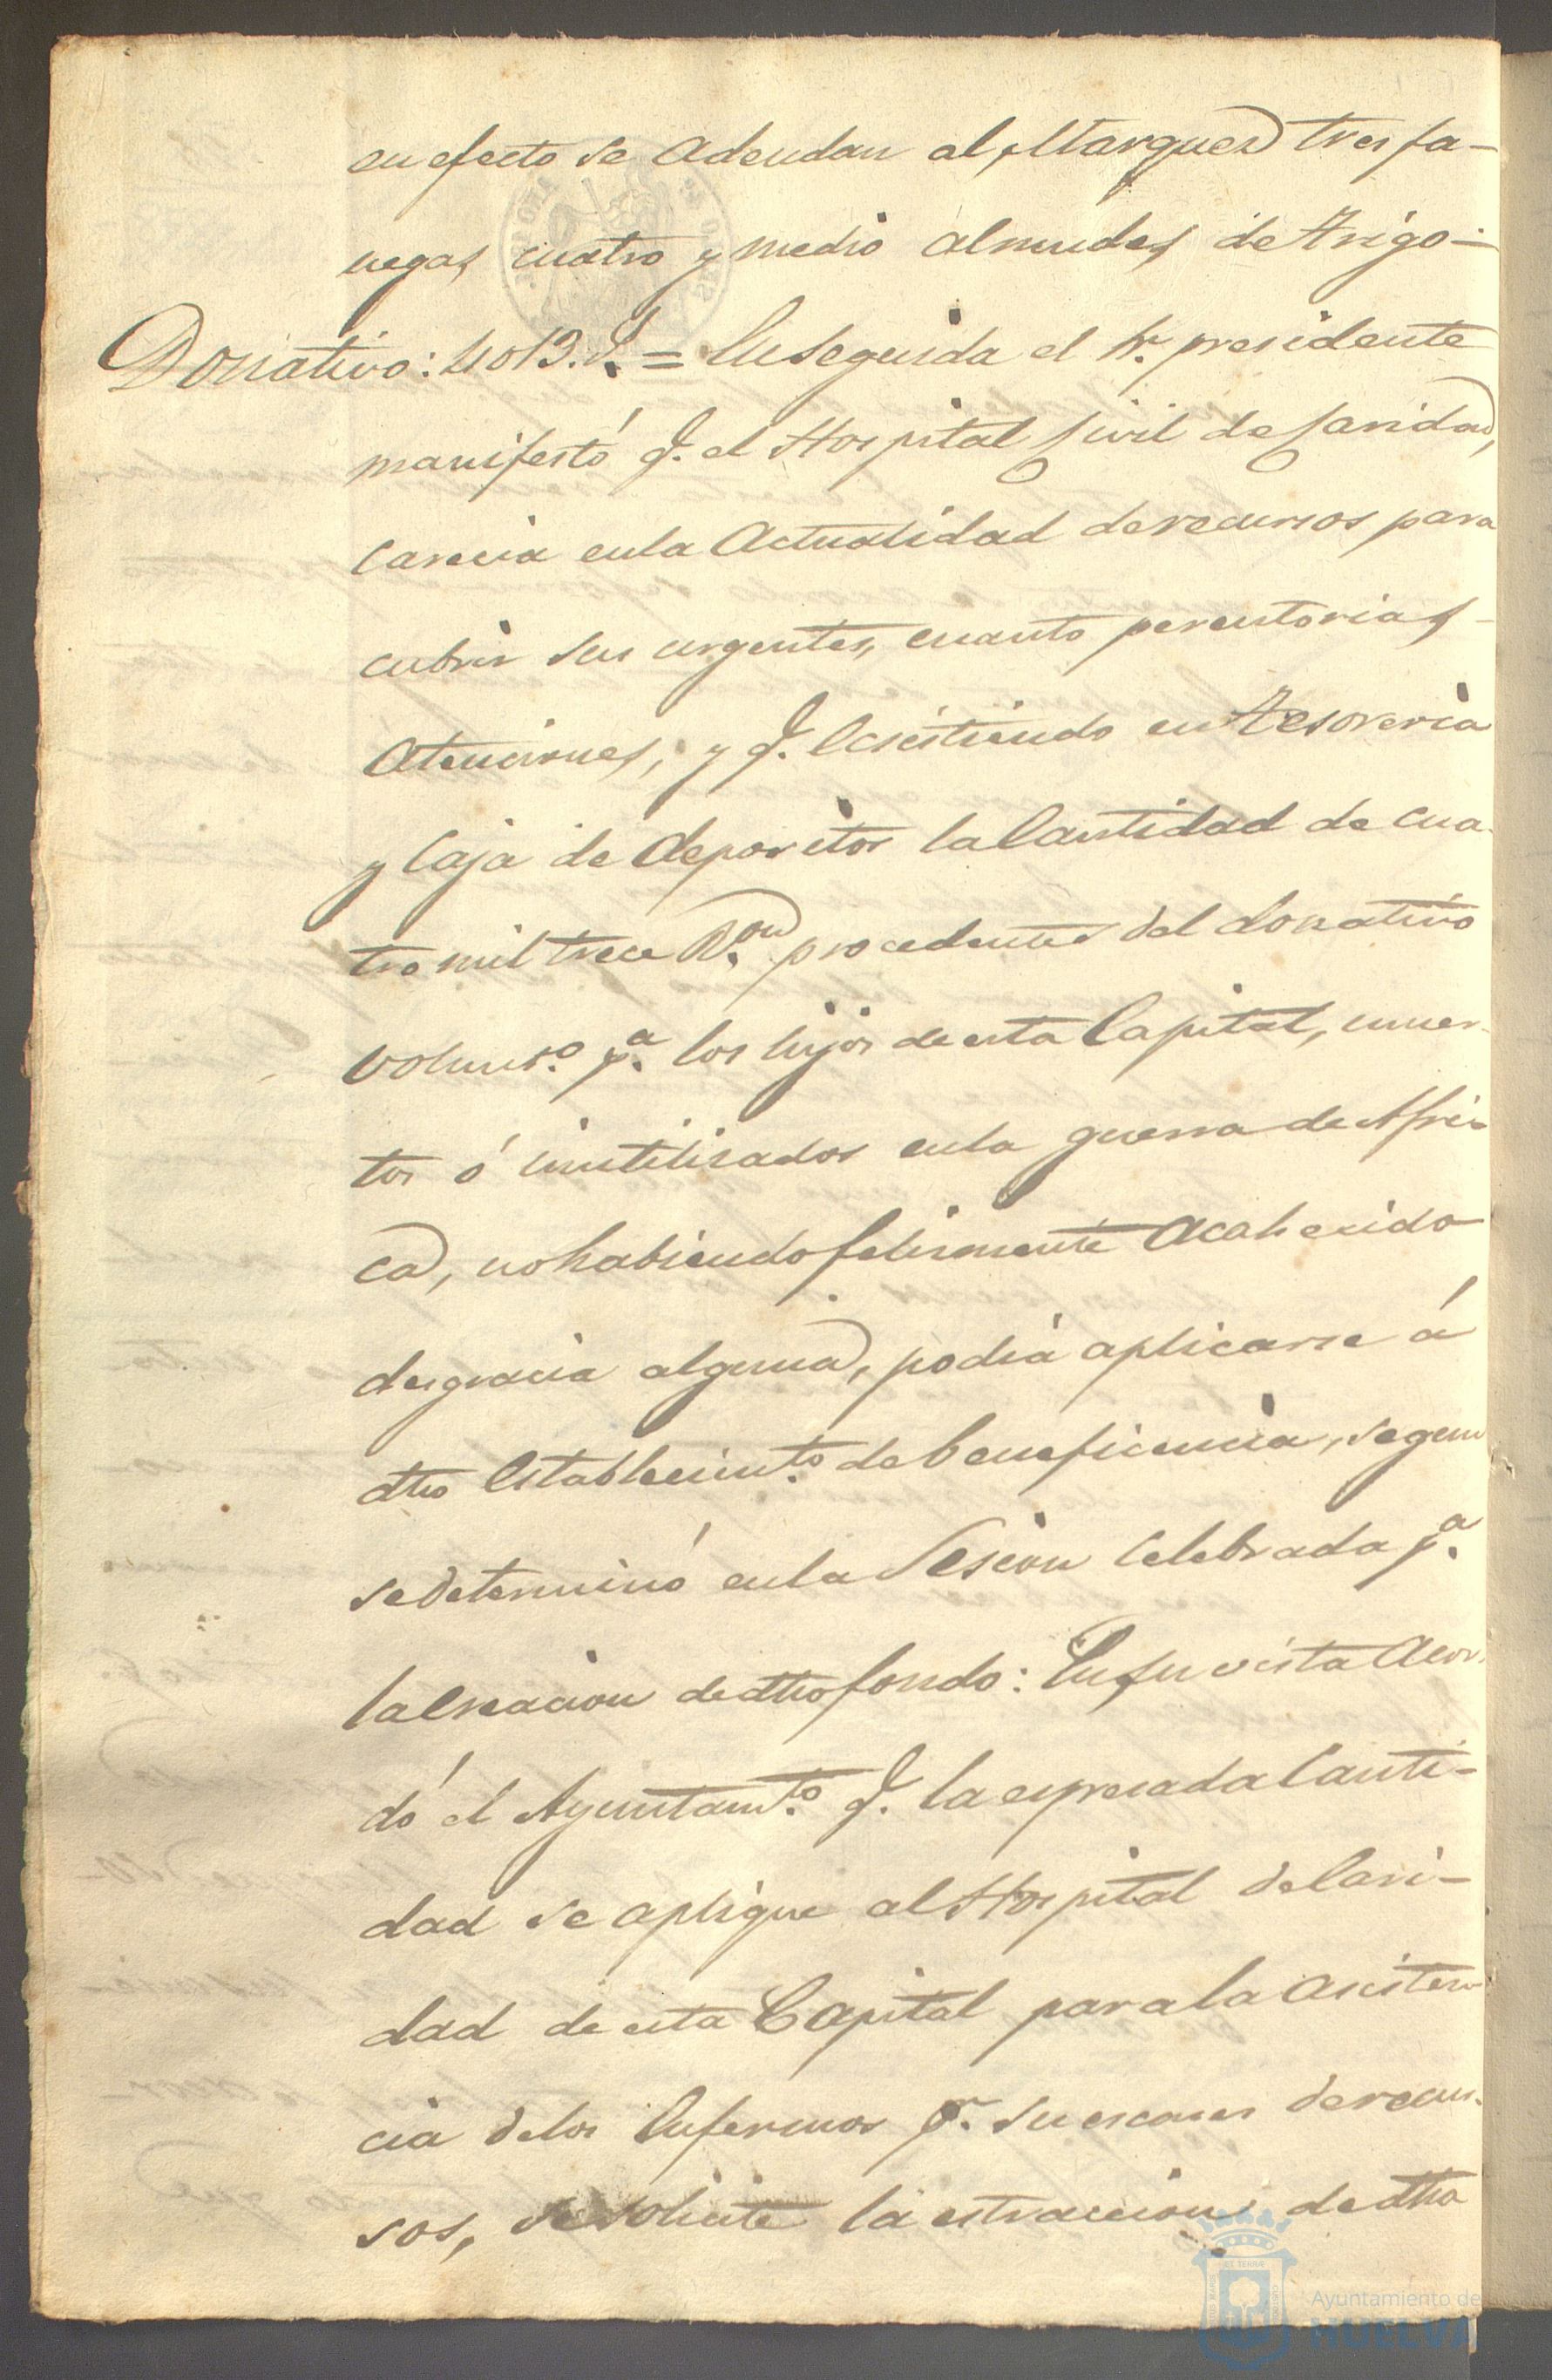 en efecto se Adeudan al Marques tres fa-
negas, cuatro y medio almudes de trigo-
Donativo: 4013. r.s = Enseguida el Sr. presidente
manifestó q. el Hospital sivil de saridad,
Carecia enla Actualidad de recursos para
cubrir sus urgentes, cuanto perentorias-
Atenciones, y q. Ecsistiendo en Tesoreria
y Caja de depositos la Cantidad de cua-
tro mil trece R.on procedentes del donativo
volunt.o p.a los hijos de esta Capital, muer-
tos ó inutilisados enla guerra de Afri-
ca, no habiendo felismente Acahecido
desgracia alguna, podia aplicarse á
dho Establecim.to de beneficencia, segun
se determinó enla Sesion Celebrada p.a
la Creacion de dho fondo: En su vista Acor-
dó el Ayuntam.to q. la espresada Canti-
dad se aplique al Hospital de Cari-
dad de esta Capital para la Asisten-
cia delos Enfermos p.r su escases de recur-
sos, se solicite la estraccion de dha
Ayuntamiento de
HUELVA